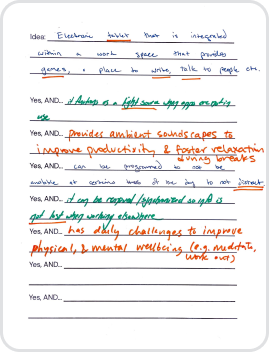 Idea: Electronic tablet that is integrated
within a work space that provides
games, a place to write, talk to people etc.
Yes, AND... it is a light source when you are not in
use
Yes, AND... provides ambient soundscapes to
improve productivity & foster relaxation
during breaks
Yes, AND... can be programmed to not be
available at certain times of the day to not distract
Yes, AND... it can be removed / synchronized so it is
not lost when working elsewhere
Yes, AND... has daily challenges to improve
physical, & mental wellbeing (e.g. meditate,
work out)
Yes, AND...
Yes, AND...